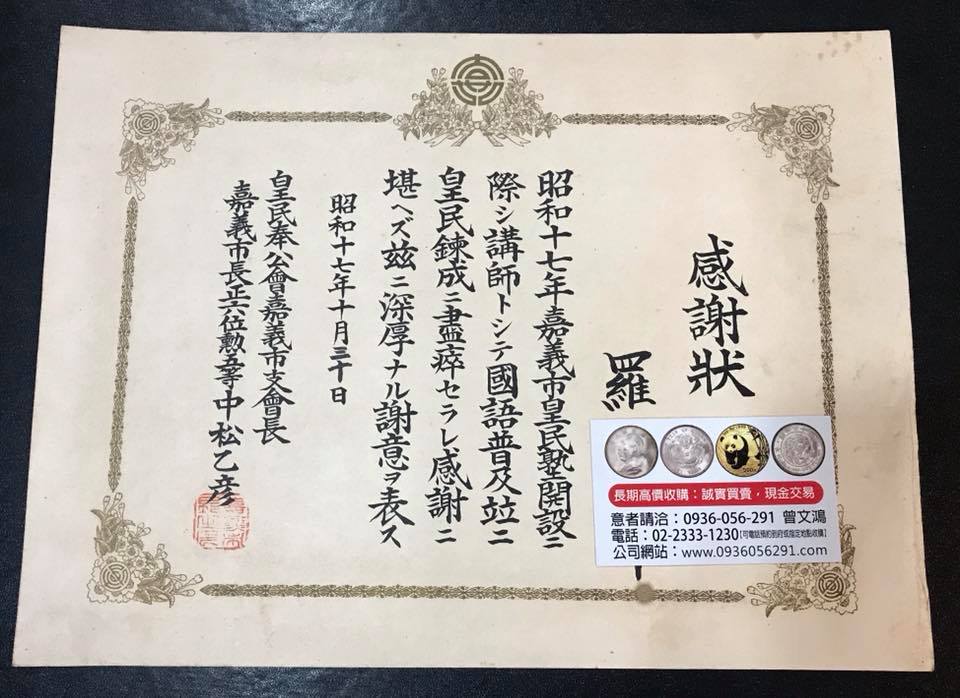 感謝狀
羅
昭和十七年嘉義市皇民塾開設ニ
際シ講師トシテ國語普及竝ニ
皇民鍊成ニ盡瘁セラレ感謝ニ
堪ヘズ茲ニ深厚ナル謝意ヲ表ス
昭和十七年十月三十日
皇民奉公會嘉義市支會長
嘉義市長正六位勲五等中松乙彦
長期高價收購：誠實買賣，現金交易
意者請洽：0936-056-291 曾文鴻
電話：02-2333-1230【可電話預約到府或指定地點收購】
公司網站：www.0936056291.com